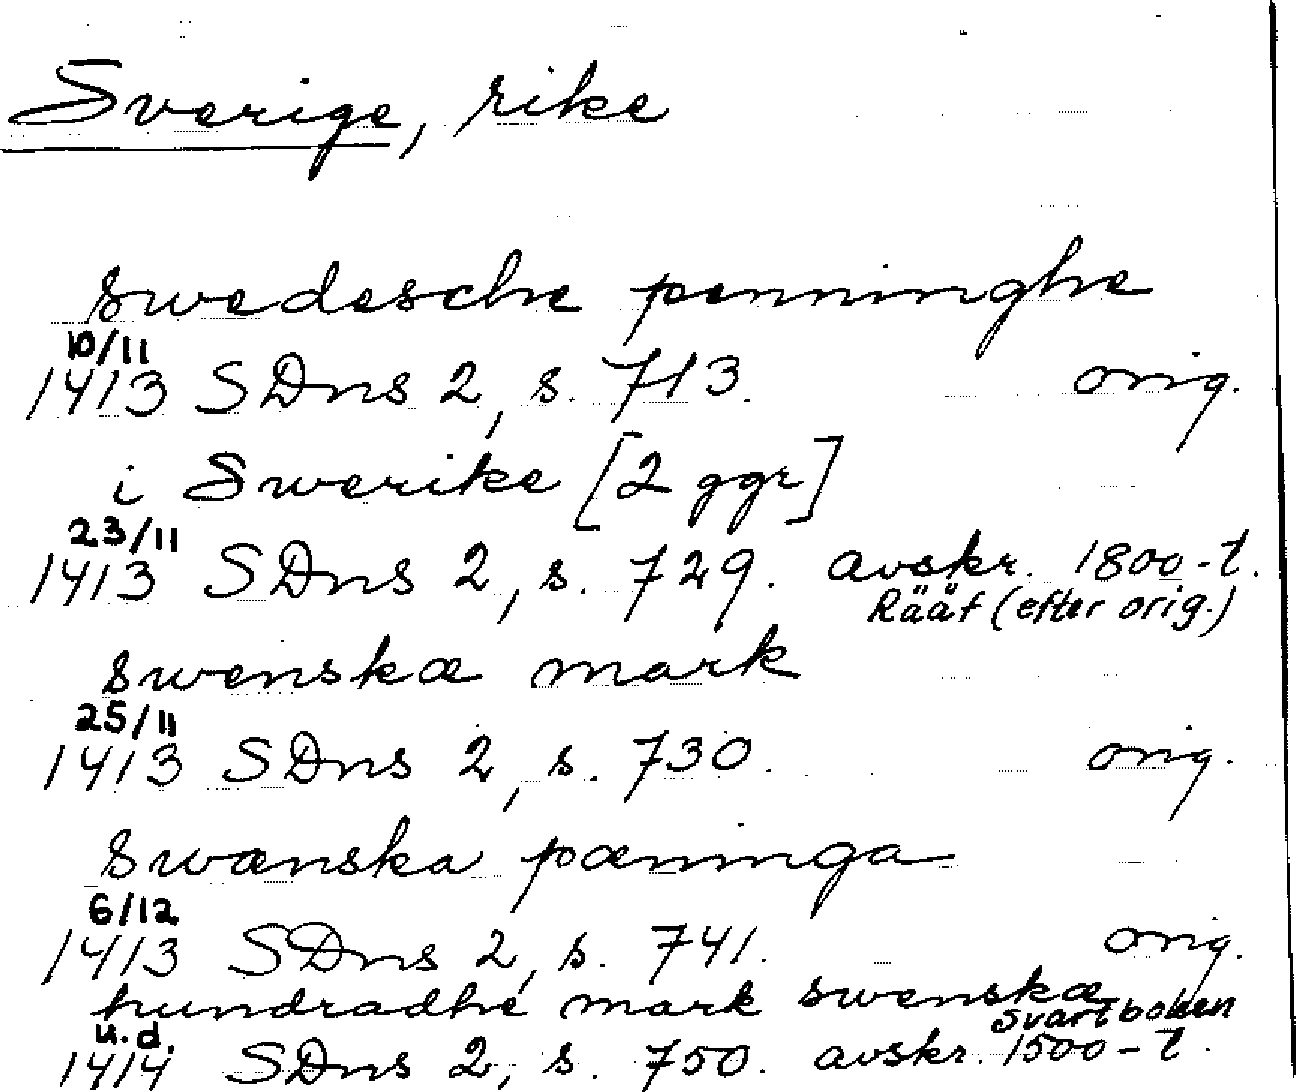 Sverige, rike
swedesche penninghe
10/11
1413 SDns 2, s. 713. orig.
i Swerike [2 ggr]
23/11
1413 SDns 2, s. 729. avskr. 1800-t.
Rääf (efter orig.)
swenskæ mark
25/11
1413 SDns 2, s. 730. orig.
swænska pæninga
6/12
1413 SDns 2, s. 741. orig.
hundradhe mark swenskæ
u.d. Svartboken
1414 SDns 2, s. 750. avskr. 1500-t.